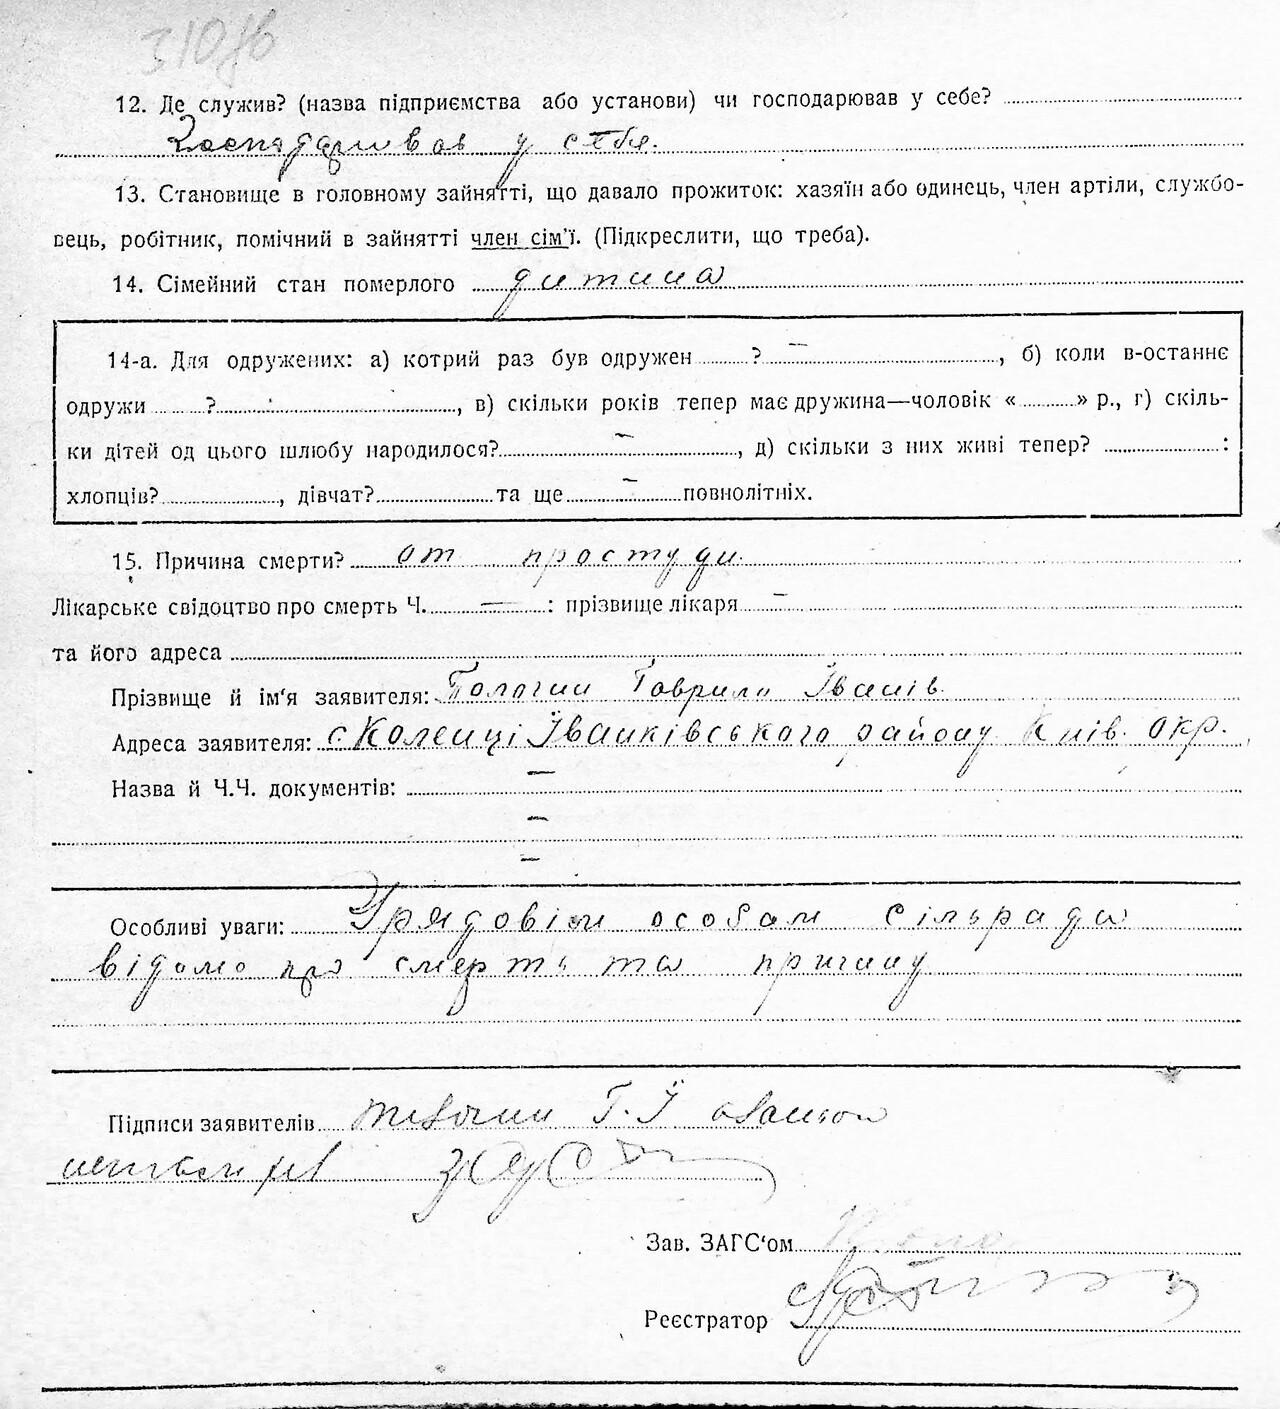 12. Де служив? (назва підприємства або установи) чи господарював у себе?
Господарював у себя.
13. Становище в головному зайнятті, що давало прожиток: хазяїн або одинець, член артіли, службо-
вець, робітник, помічний в зайнятті член сім’ї. (Підкреслити, що треба).
14. Сімейний стан померлого дитина
14-а. Для одружених: а) котрий раз був одружен ? —, б) коли в-останнє
одружи ?, в) скільки років тепер має дружина—чоловік « » р., г) скіль-
ки дітей од цього шлюбу народилося? —, д) скільки з них живі тепер? :
хлопців?, дівчат? та ще — повнолітніх.
15. Причина смерти? от простуди
Лікарське свідоцтво про смерть Ч. — : прізвище лікаря —
та його адреса
Прізвище й ім‘я заявителя: Гаврило Іванів
Адреса заявителя: с Коленці Іванківського району Київ. окр.
Назва й Ч.Ч. документів: —
—
—
Особливі уваги: Урядовім особам сільради
відомо про смерть та причину
Підписи заявителів Г. І
Зав. ЗАГС‘ом
Реєстратор